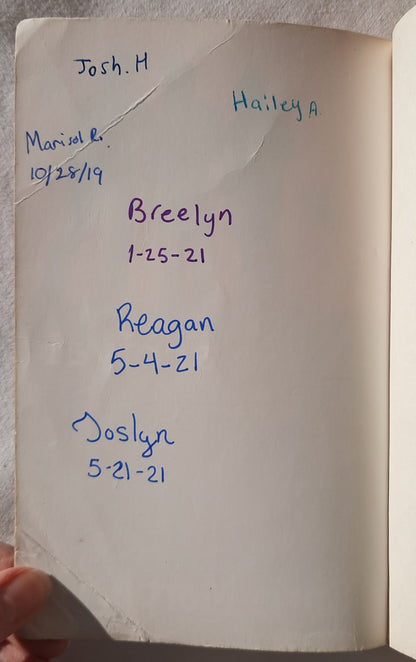 Josh. H
Hailey A.
Marisol R.
10/28/19
Breelyn
1-25-21
Reagan
5-4-21
Joslyn
5-21-21